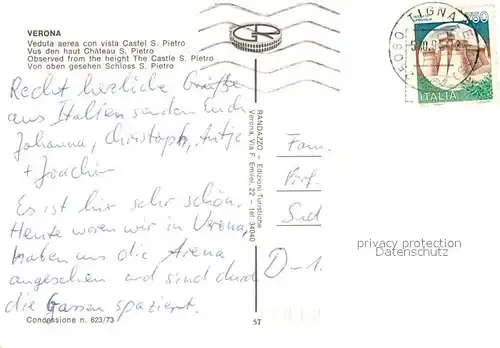 VERONA
Veduta aerea con vista Castel S. Pietro
Vus den haut Château S. Pietro
Observed from the height The Castle S. Pietro
Von oben gesehen Schloss S. Pietro
Recht herzliche Grüße
aus Italien senden Euch
Johanna, Christoph, Antje
+ Joachim
Es ist hier sehr schön.
Heute waren wir in Verona,
haben uns die Arena
angesehen und sind durch
die Gassen spaziert.
Concessione n. 623/73
57
RANDAZZO - Edizioni Turistiche
Verona, Via F. Emilei, 22 - tel. 34040
GR
750
ITALIA
TIGNALE
Fam.
Prof.
D-1.
privacy protection
Datenschutz